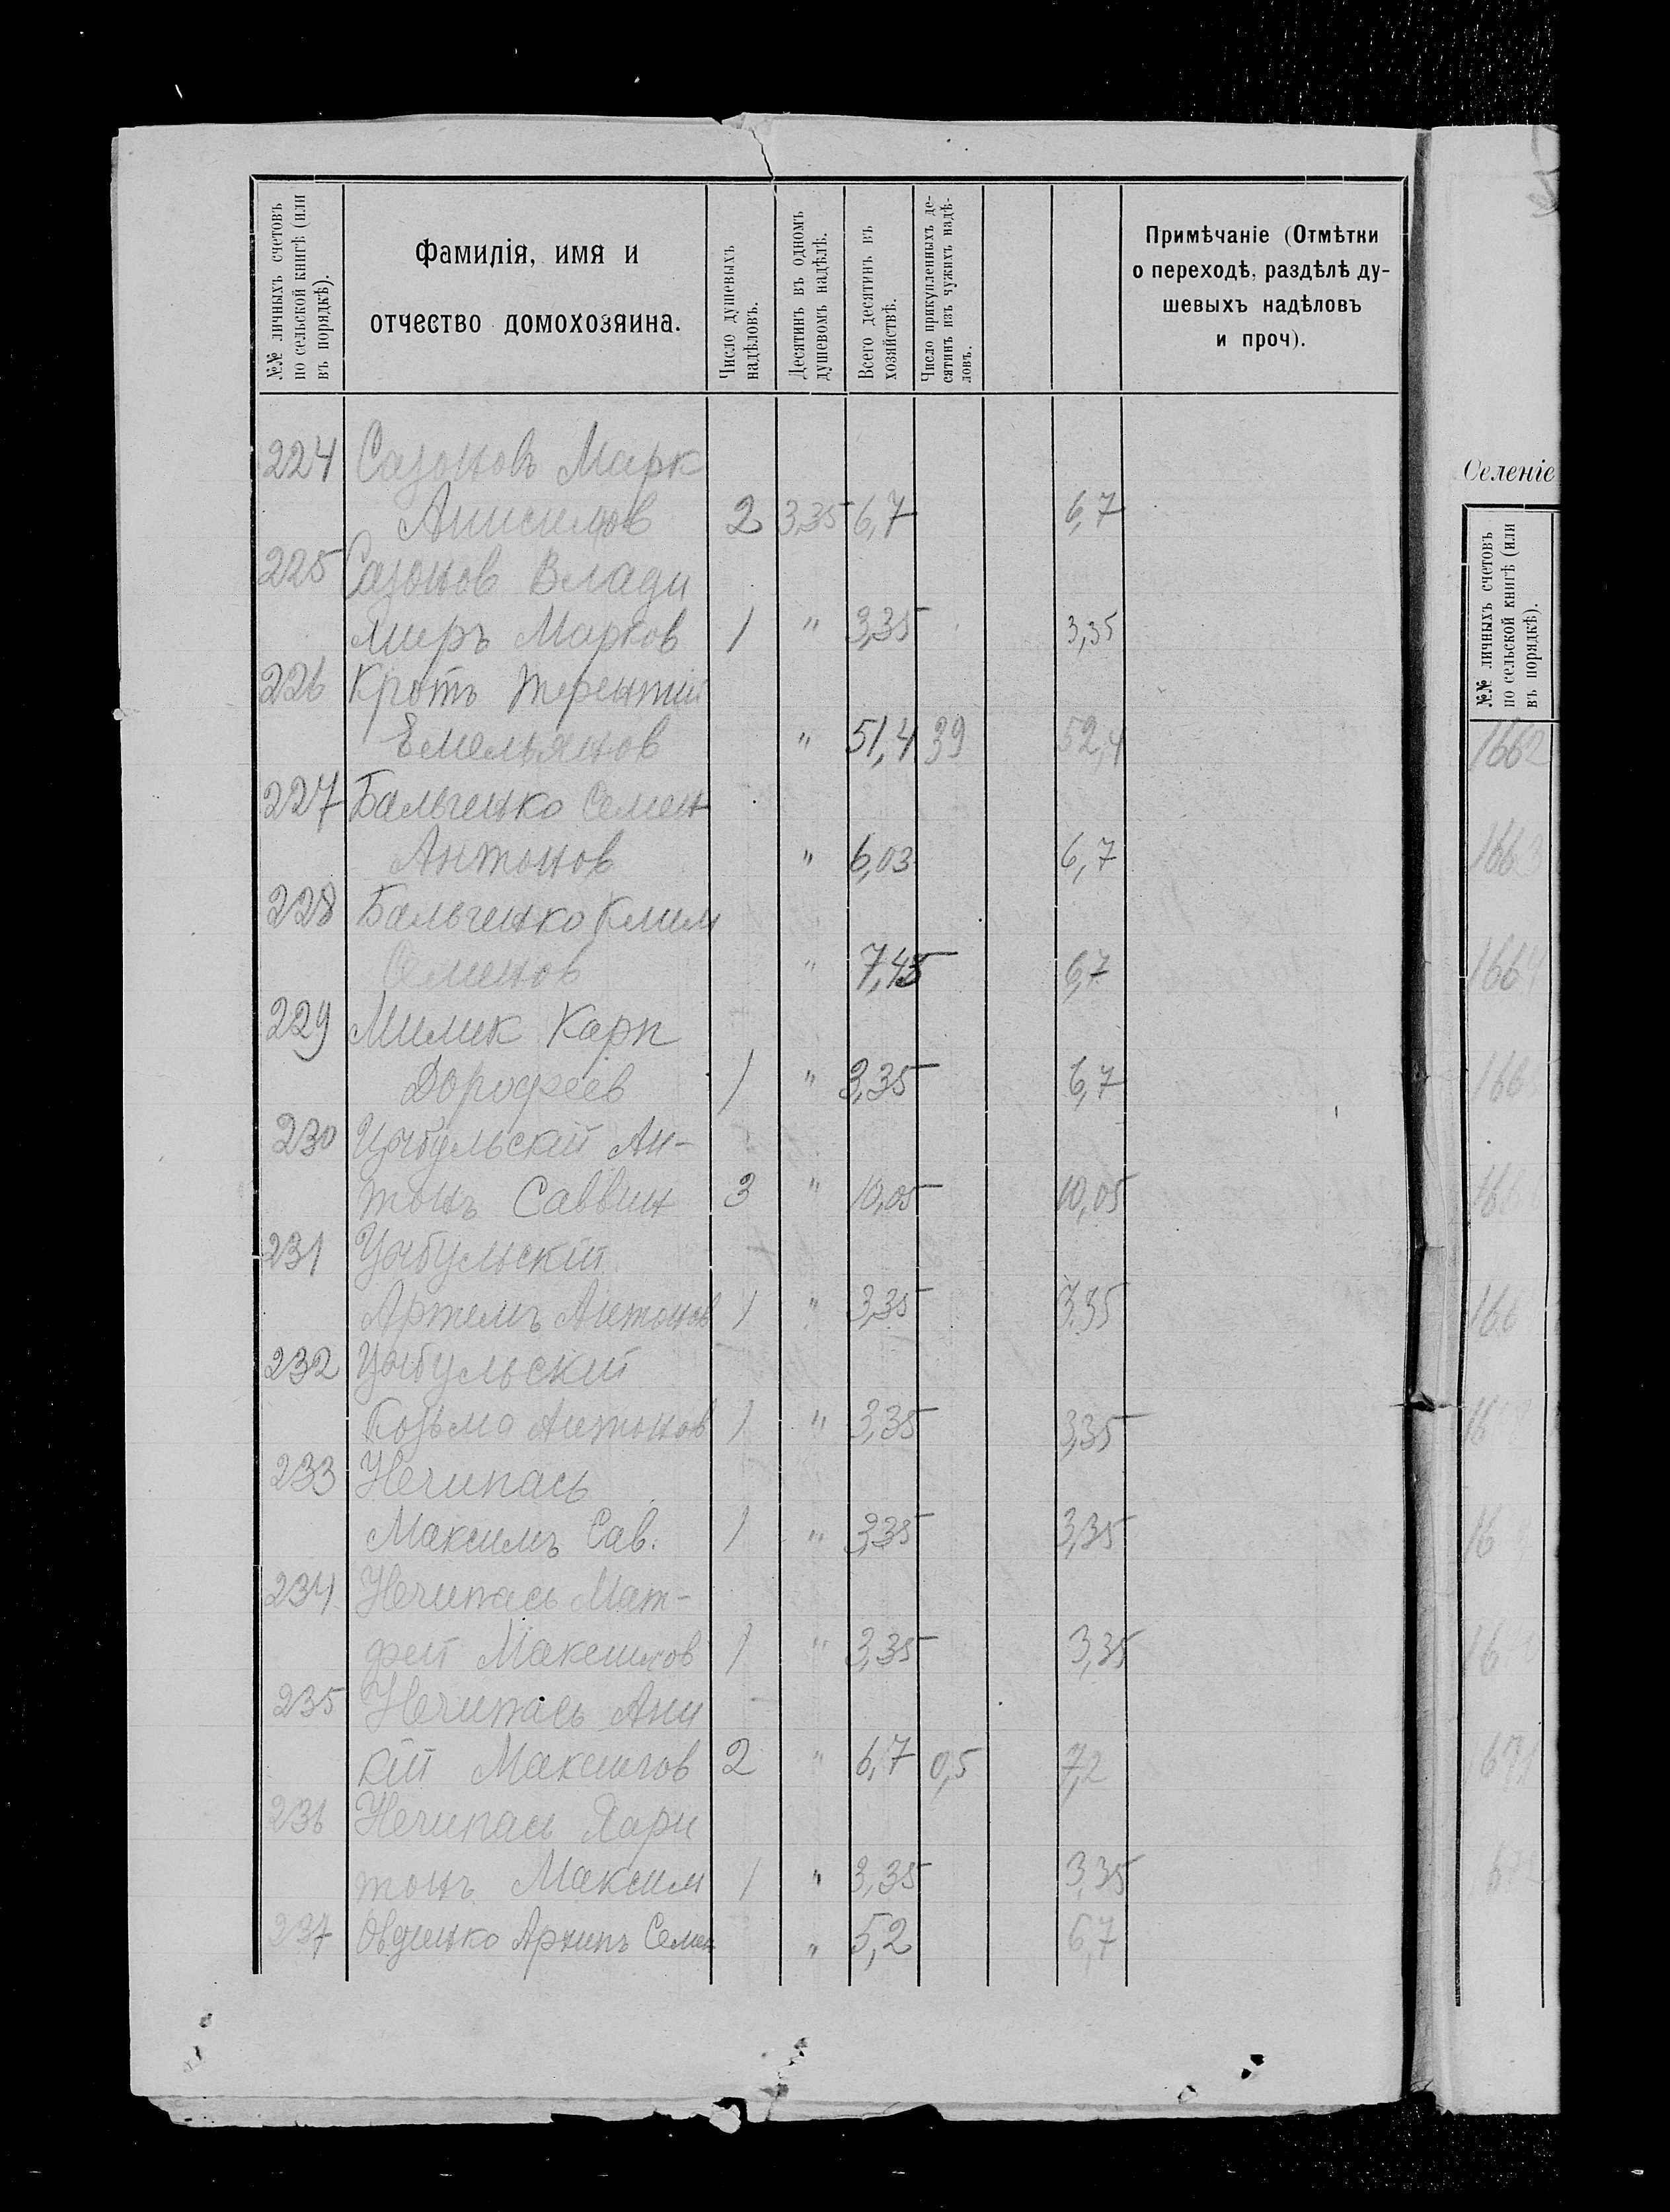 №№ личныхъ счетовъ
по сельской книгѣ (или
въ порядкѣ).
Фамилія, имя и
отчество домохозяина.
Число душевыхъ
надѣловъ.
Десятинъ въ одномъ
душевомъ надѣлѣ.
Всего десятинъ въ
хозяйствѣ.
Число прикупленныхъ де-
сятинъ изъ чужихъ надѣ-
ловъ.
Примѣчаніе (Отмѣтки
о переходѣ, раздѣлѣ ду-
шевыхъ надѣловъ
и проч).
224 Сазоновъ Марк
Анисимов 2 3,35 6,7 6,7
225 Сазонов Влади
миръ Марков 1 " 3,35 3,35
226 Кротъ Терентий
Емельянов " 51,4 39 52,4
227 Бальченко Семен
Антонов " 6,03 6,7
228 Бальченко Клим
Семенов " 7,45 6,7
229 Милик Карп
Дорофеев 1 " 3,35 6,7
230 Цыбульскій Ан-
тонъ Саввин 3 " 10,05 10,05
231 Цыбульскій
Артемъ Антонов 1 " 3,35 3,35
232 Цыбульскій
Козьма Антонов 1 " 3,35 3,35
233 Нечипась
Максимъ Сав. 1 " 3,35 3,35
234 Нечипась Мат-
фей Максимов 1 " 3,35 3,35
235 Нечипась Ани
кій Максимов 2 " 6,7 0,5 7,2
236 Нечипась Хари
тонъ Максим 1 " 3,35 3,35
237 Овдиенко Архипъ Семен " 5,2 6,7
Селеніе
№№ личныхъ счетовъ
по сельской книгѣ (или
въ порядкѣ).
1662
1663
1664